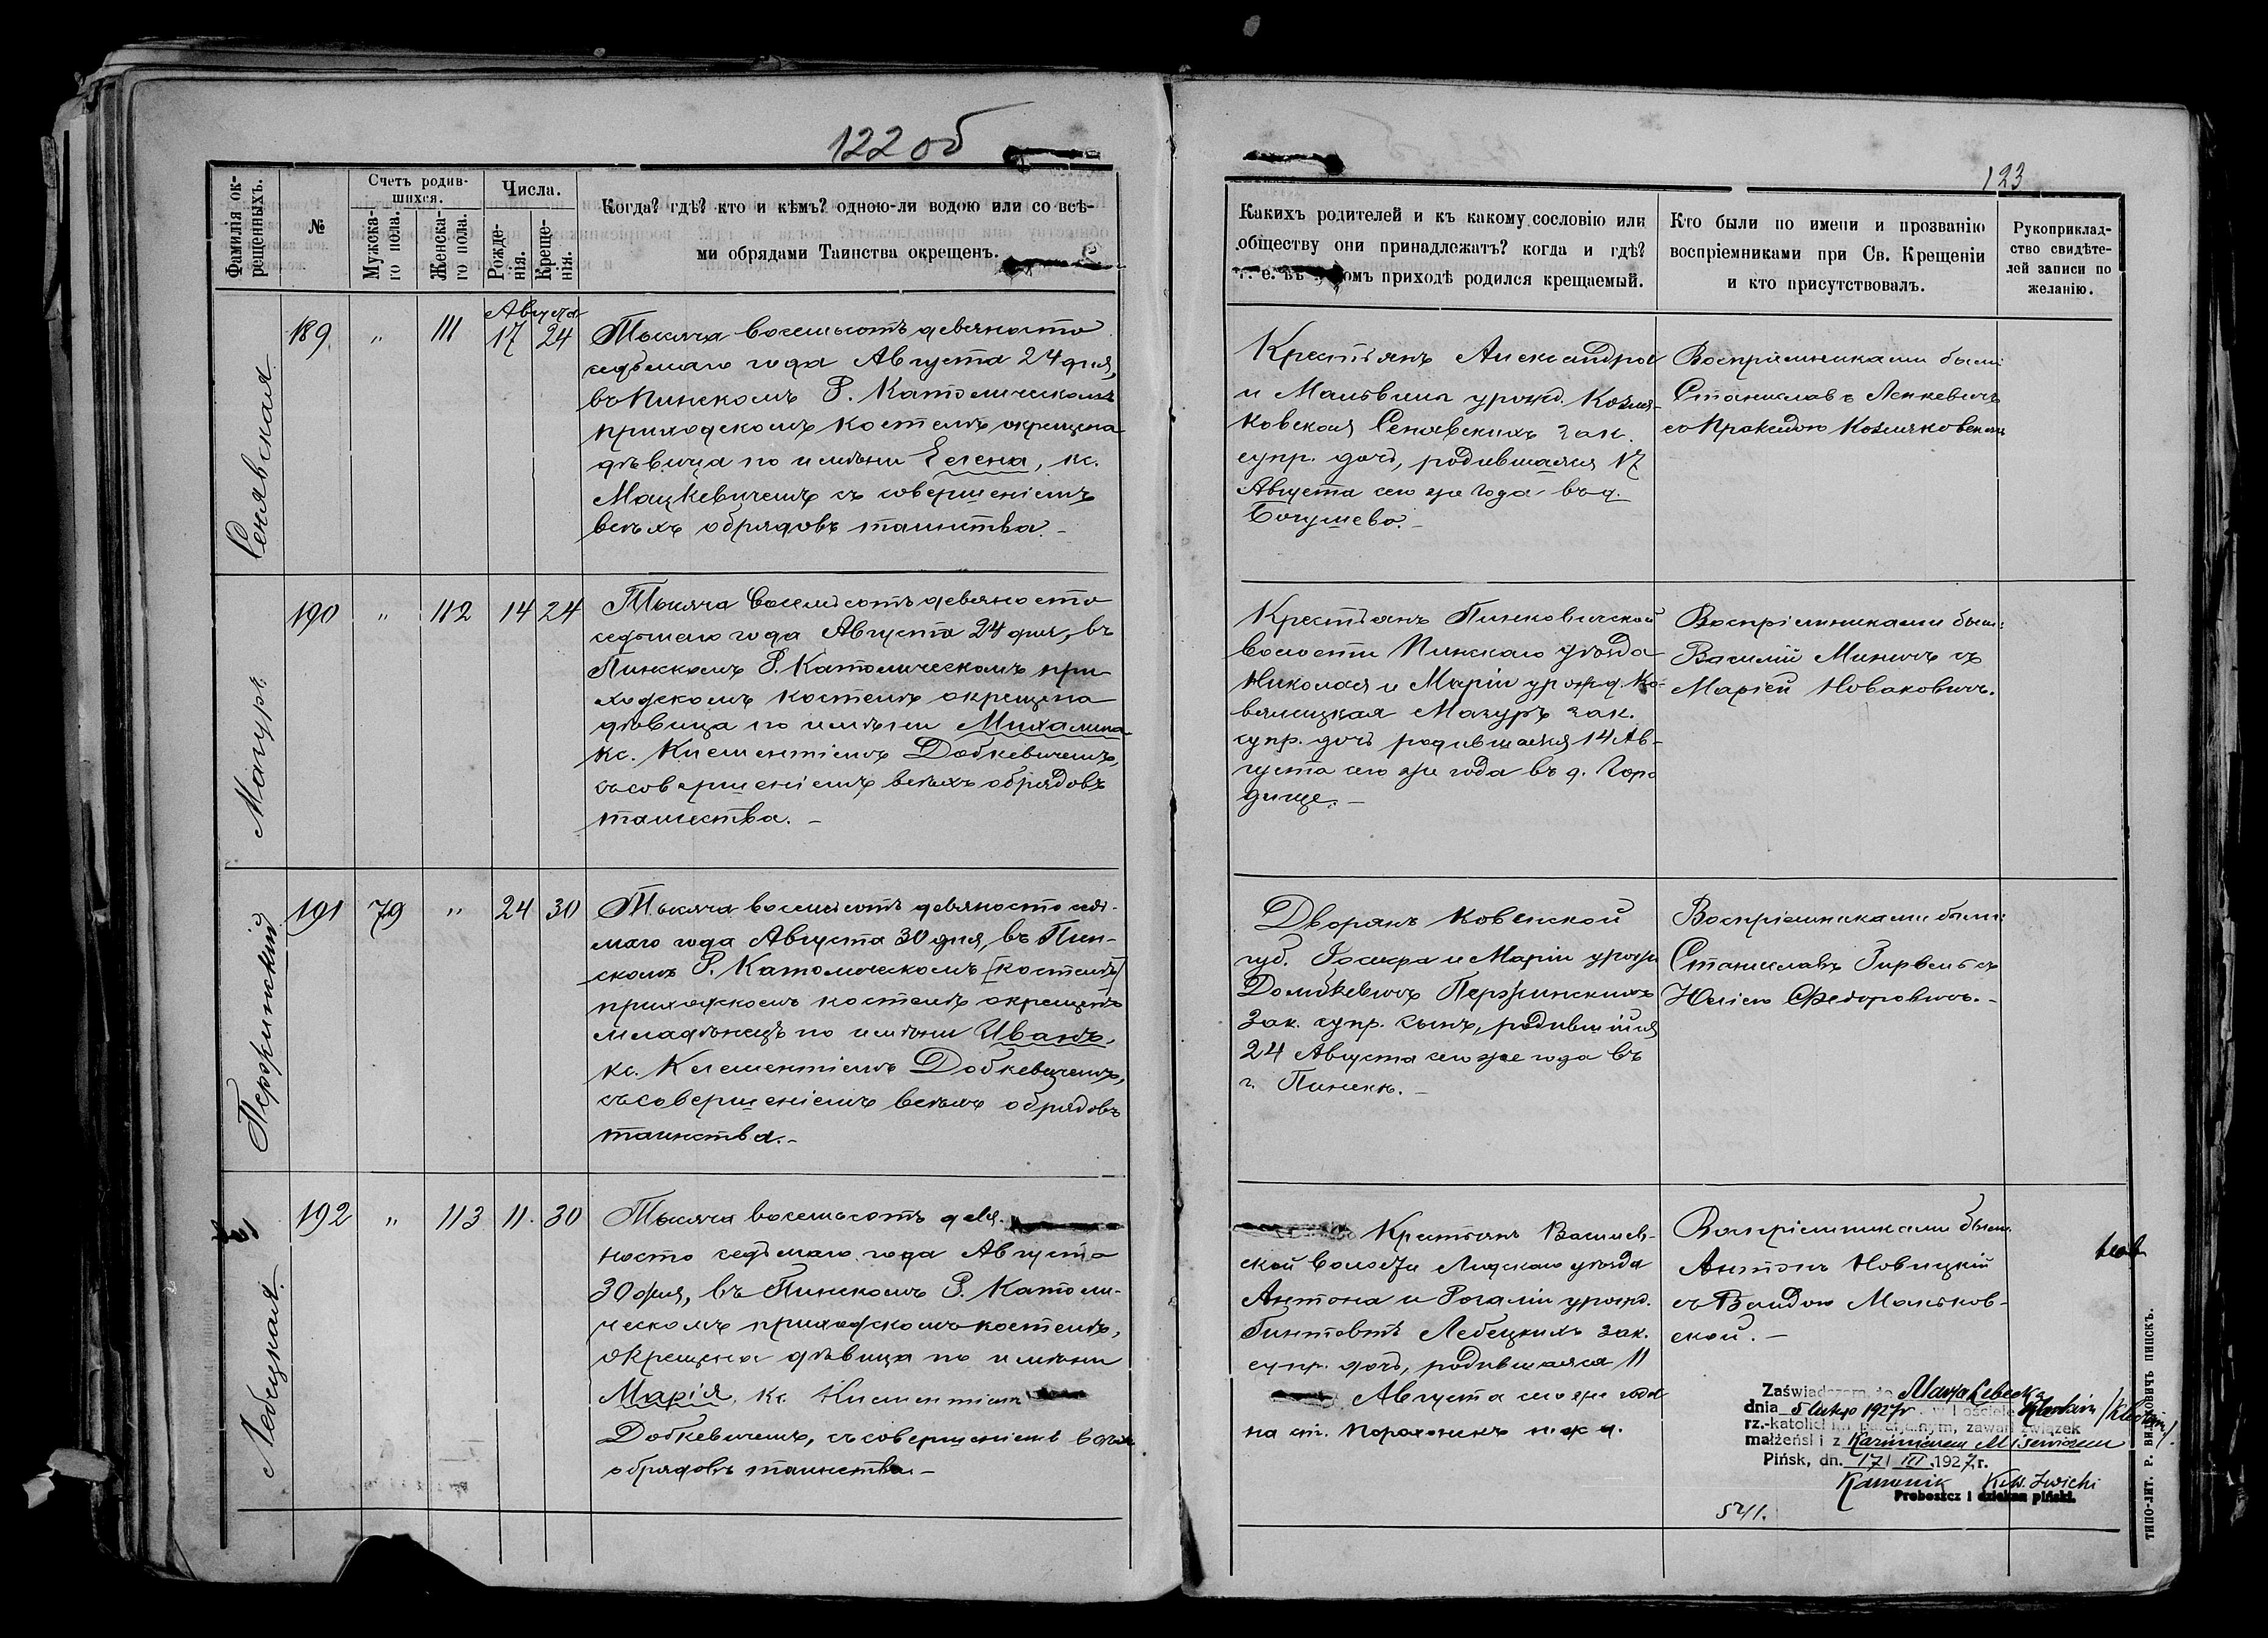 122 об
123
Фамилія ок-
рещенныхъ.
№
Счетъ родив-
шихся.
Мужска-
го пола.
Женска-
го пола.
Числа.
Рожде-
нія.
Креще-
нія.
Когда? гдѣ? кто и кѣмъ? одною-ли водою или со всѣ-
ми обрядами Таинства окрещенъ.
Какихъ родителей и къ какому сословію или
обществу они принадлежатъ? когда и гдѣ?
т. е. въ омъ приходѣ родился крещаемый.
Кто были по имени и прозванію
воспріемниками при Св. Крещеніи
и кто присутствовалъ.
Рукоприклад-
ство свидѣте-
лей записи по
желанію.
Сенявская
189
"
111
Августа
17
24
Тысяча восемьсотъ девяносто
седьмаго года Августа 24 дня,
въ Пинскомъ Р. Католическомъ
приходскомъ костелѣ окрещена
дѣвица по имени Елена, кс.
Мацкевичемъ съ совершеніемъ
всѣхъ обрядовъ таинства. -
Крестьянъ Александра
и Мальвины урожд. Козля-
ковская Сенявскихъ зак.
супр. дочь, родившаяся 17
Августа сего же года въ д.
Богушево. -
Воспріемниками были:
Станиславъ Ленкевичъ
со Пракседою Козляковскою
Мазуръ
190
"
112
14
24
Тысяча восемьсотъ девяносто
седьмаго года Августа 24 дня, въ
Пинскомъ Р. Католическомъ при-
ходскомъ костелѣ окрещена
дѣвица по имени Михалина
кс. Клементіемъ Добкевичемъ,
съ совершеніемъ всѣхъ обрядовъ
таинства. -
Крестьянъ Пинковичской
волости Пинскаго уѣзда
Николая и Маріи урожд. Ко-
валицкая Мазуръ зак.
супр. дочь родившаяся 14 Ав-
густа сего же года въ д. Горо
дище. -
Воспріемниками были:
Василій Миничъ съ
Маріей Новаковичъ.
Пержинскій
191
79
"
24
30
Тысяча восемьсотъ девяносто седь-
маго года Августа 30 дня, въ Пин-
скомъ Р. Католическомъ [костелѣ]
приходскомъ костелѣ окрещенъ
младенецъ по имени Иванъ,
кс. Клементіемъ Добкевичемъ,
съ совершеніемъ всѣхъ обрядовъ
таинства. -
Дворянъ Ковенской
губ. и Маріи урожд
Домбкевичъ Пержинскихъ
зак. супр. сынъ, родившійся
24 Августа сего же года въ
г. Пинскѣ. -
Воспріемниками были:
Станиславъ съ
Юліею Федоровичъ. -
Лебецкая.
192
"
113
11.
30
Тысяча восемьсотъ девя-
носто седьмаго года Августа
30 дня, въ Пинскомъ Р. Католи-
ческомъ приходскомъ костелѣ,
окрещена дѣвица по имени
Марія, кс. Клементіемъ
Добкевичемъ, съ совершеніемъ всѣхъ
обрядовъ таинства. -
Крестьянъ Василев-
ской волости Лидскаго уѣзда
Антона и Розаліи урожд.
Гинтовтъ Лебецкихъ зак.
супр. дочь, родившаяся 11
Августа сего же года
на ст. Порохонскъ п. ж. д.
Воспріемниками были
Антонъ Новицкій
съ Вандою Маньков-
ской. -
Zaświadczam, że Marja Lebecka
dnia 5 lutego 1927 r. w kościele
rz.-katolickim parafjalnym, zawarł związek
małżeński z Kazimierzem Misiewiczem
Pińsk, dn. 17/III 1927 r.
Kanonik
Proboszcz i dziekan piński.
5411.
ТИПО-ЛИТ. Р. ВИЛКОВИЧЪ ПИНСКЪ.